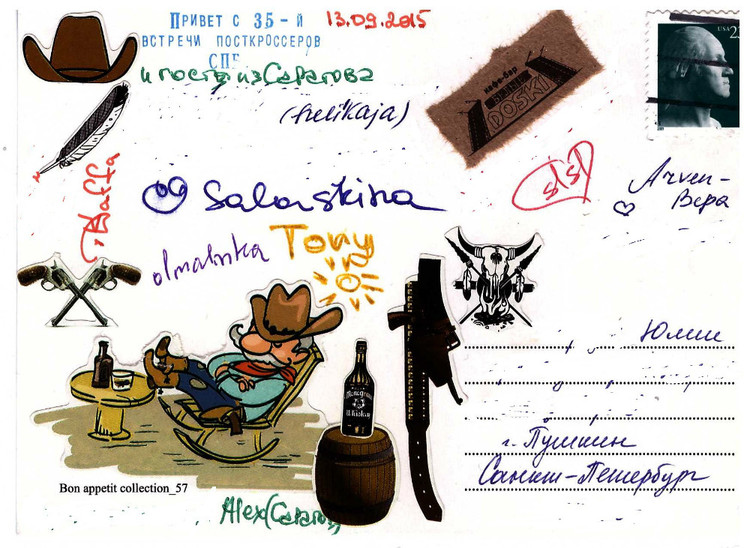 ПРИВЕТ С 35-Й
ВСТРЕЧИ ПОСТКРОССЕРОВ
СПБ
13.09.2015
и гостьи из Саратова
(helikaja)
кафе-бар
DOSKI
USA
Salarskina
Arven-
Вера
olmalinka
Tony
Юлии
г. Пушкин
Санкт-Петербург
Bon appetit collection_57
Alex(Саратов)